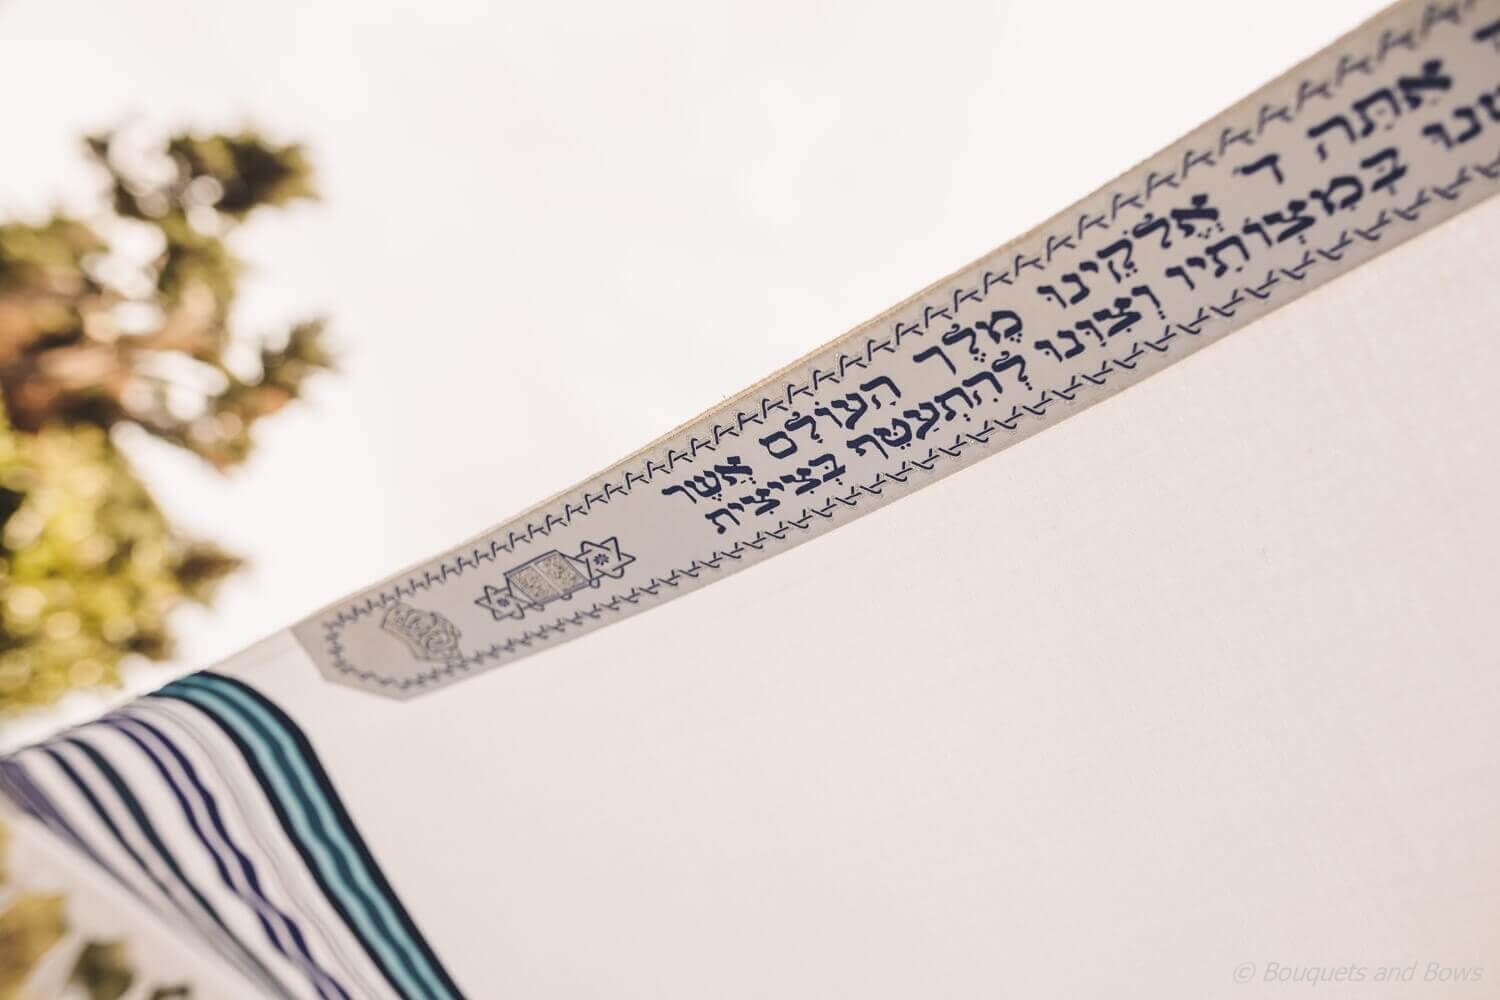 אַתָּה ד׳ אֱלֹקֵינוּ מֶלֶךְ הָעוֹלָם אֲשֶׁר
בְּמִצְוֹתָיו וְצִוָּנוּ לְהִתְעַטֵּף בְּצִיצִית
© Bouquets and Bows